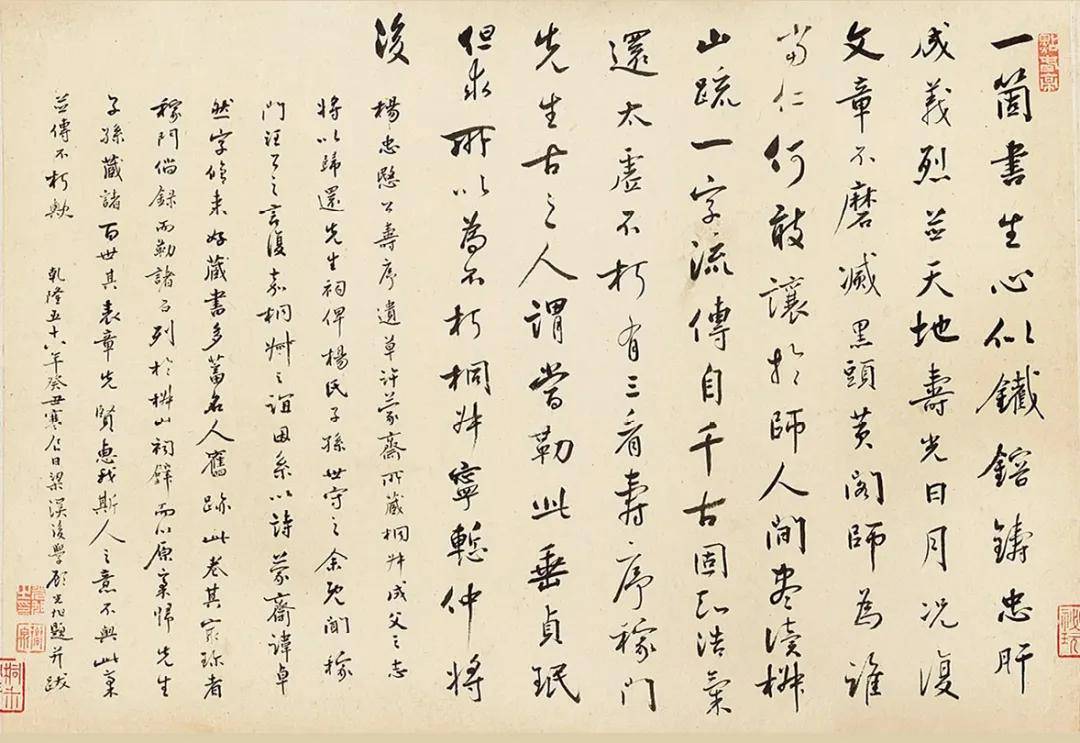 一箇書生心似鐵鎔鑄忠肝
成義烈並天地壽光日月況復
文章不磨滅黑頭黃閣師為誰
當仁何敢讓於師人間盡讀椒
山疏一字流傳自千古固知浩氣
還太虛不朽有三看壽序稼門
先生古之人謂當勒此垂貞珉
但求所以為不朽桐叔寧慙仲將
後
楊忠愍公壽序遺草許蒙齋所藏桐叔成父之志
將以歸還先生祠俾楊氏子孫世守之余既聞稼
門汪公之言復嘉桐叔之誼因系以詩蒙齋諱卓
然字脩來好藏書多蓄名人舊跡此卷其最珍者
稼門倘錄而勒諸石列於椒山祠壁而以原稾歸先生
子孫藏諸百世其表章先賢惠我斯人之意不與此稾
並傳不朽歟 乾隆五十八年癸丑寒食日梁溪後學顧光旭題并跋